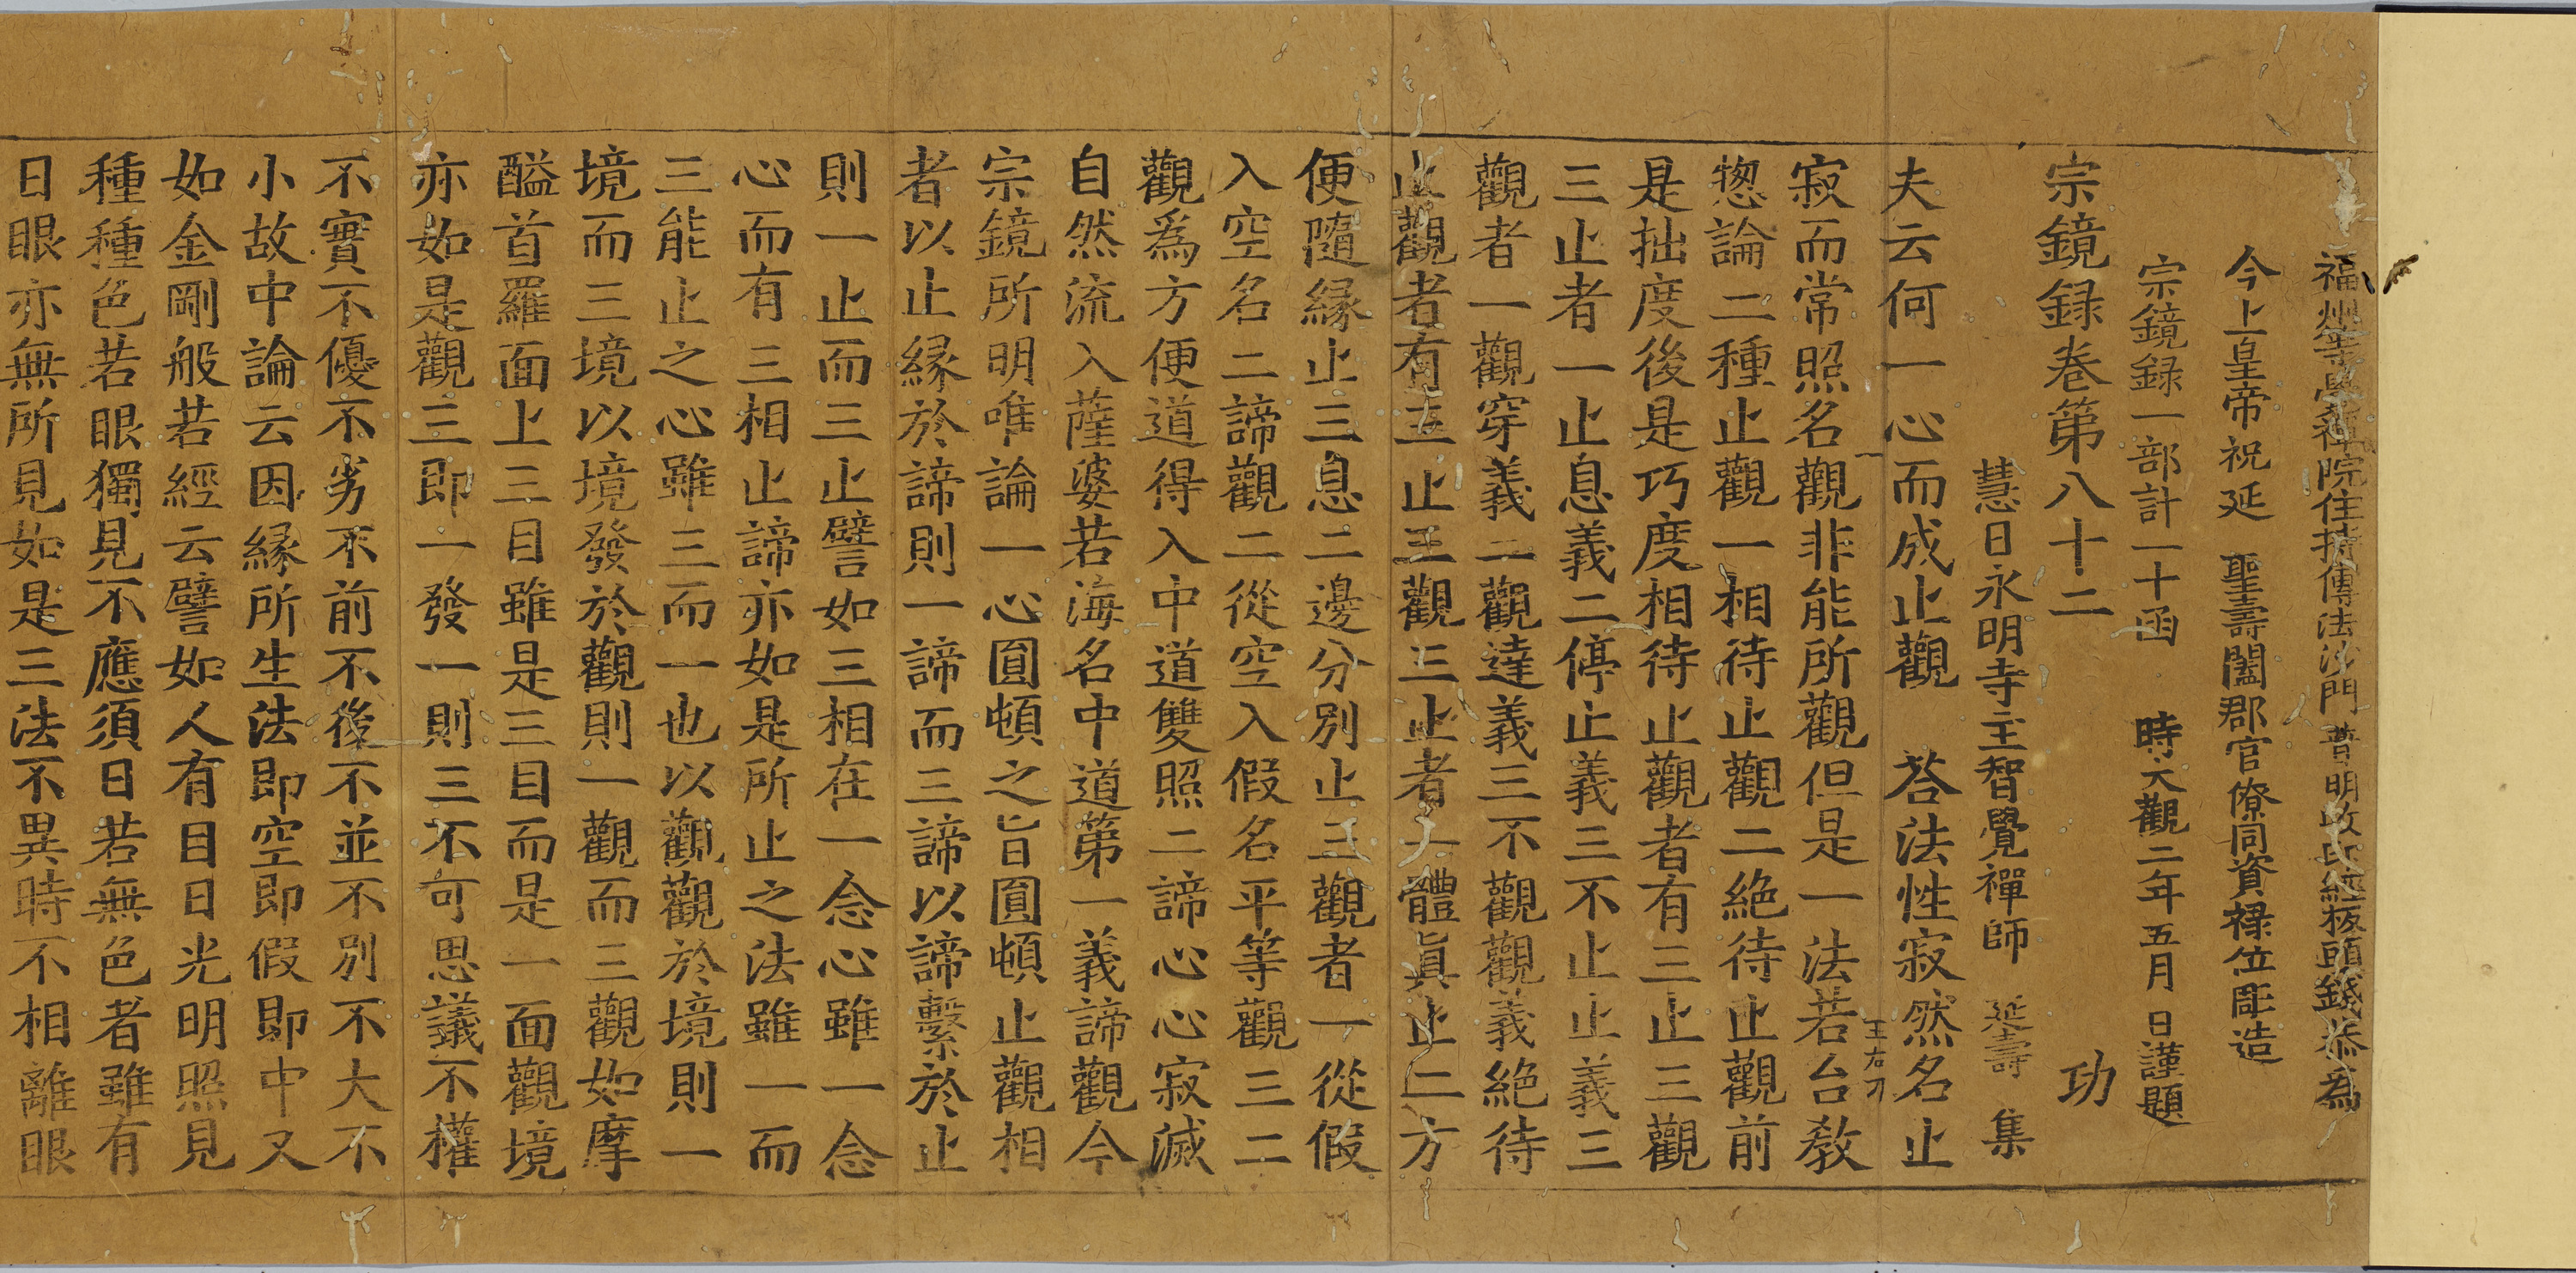 福州等覺禪院住持傳法沙門 普明收印經板頭錢恭爲
今上皇帝祝延 聖壽闔郡官僚同資禄位彫造
宗鏡録一部計一十函 時大觀二年五月 日謹題
宗鏡録卷第八十二 功
慧日永明寺主智覺禪師 延壽 集
夫云何一心而成止觀 荅法性寂然名止
寂而常照名觀非能所觀但是一法若台教
王右刀
惣論二種止觀一相待止觀二絶待止觀前
是拙度後是巧度相待止觀者有三止三觀
三止者一止息義二停止義三不止止義三
觀者一觀穿義二觀達義三不觀觀義絶待
止觀者有三止三觀三止者一體真止二方
便隨縁止三息二邊分別止三觀者一從假
入空名二諦觀二從空入假名平等觀三二
觀爲方便道得入中道雙照二諦心心寂滅
自然流入薩婆若海名中道第一義諦觀今
宗鏡所明唯論一心圓頓之旨圓頓止觀相
者以止縁於諦則一諦而三諦以諦繫於止
則一止而三止譬如三相在一念心雖一念
心而有三相止諦亦如是所止之法雖一而
三能止之心雖三而一也以觀觀於境則一
境而三境以境發於觀則一觀而三觀如摩
醯首羅面上三目雖是三目而是一面觀境
亦如是觀三即一發一則三不可思議不權
不實不優不劣不前不後不並不別不大不
小故中論云因縁所生法即空即假即中又
如金剛般若經云譬如人有目日光明照見
種種色若眼獨見不應須日若無色者雖有
日眼亦無所見如是三法不異時不相離眼